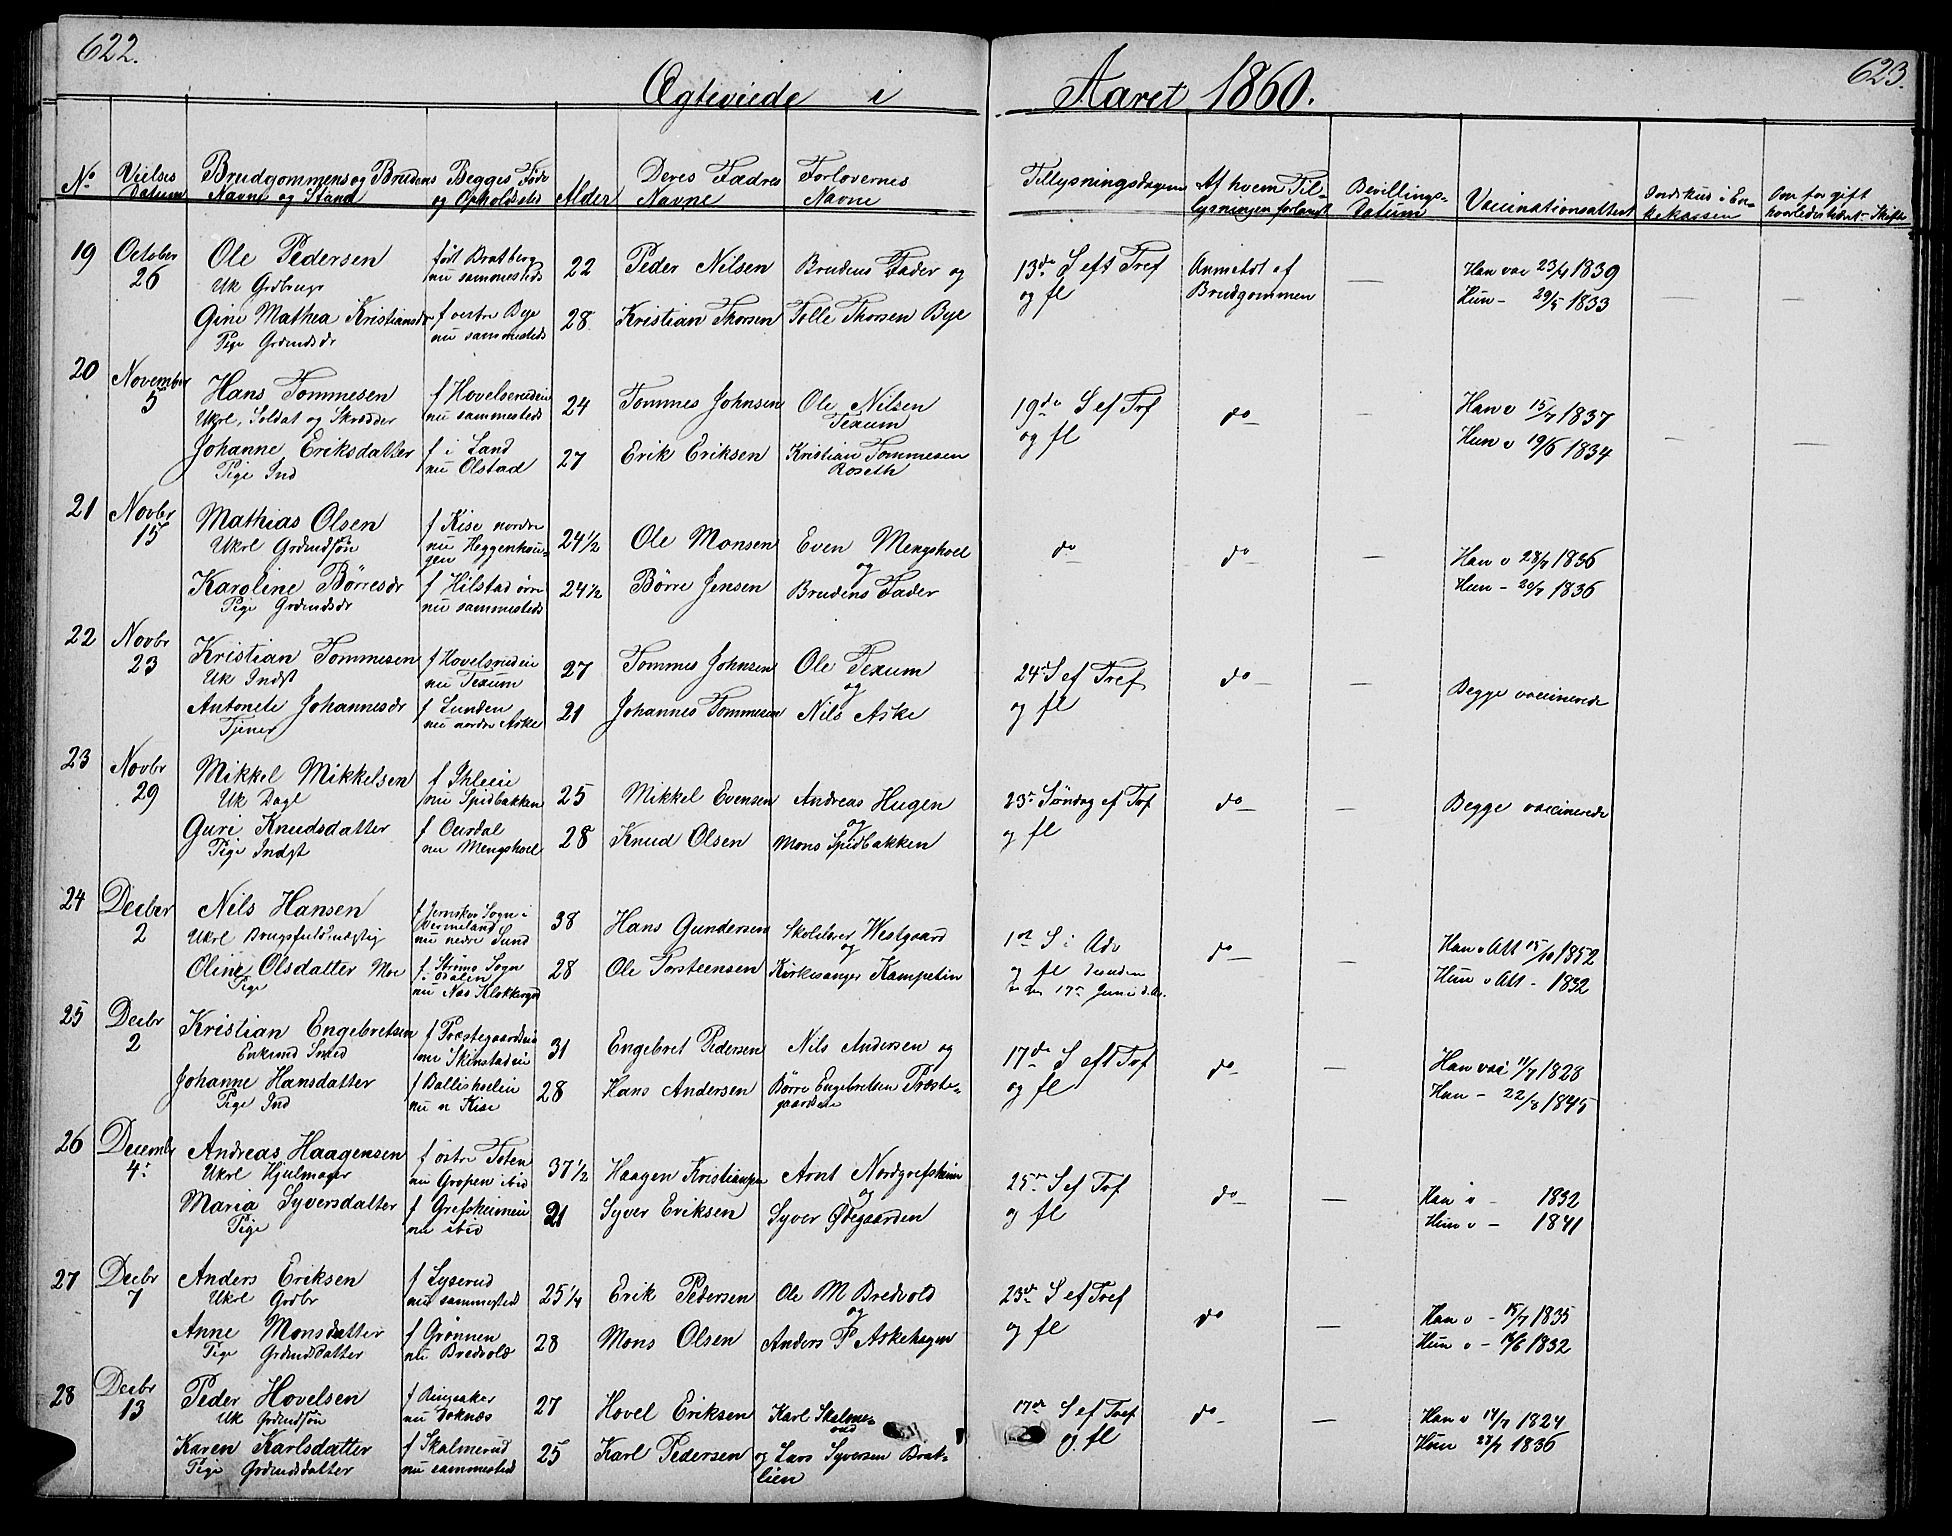 622.
623.
Ægteviede i Aaret 1860.
No Vielses Datum Brudgommens og Brudens Navne og Stand Begges Føde og Opholdssted Alder Deres Fædres Navne Forlovernes Navne Tillysningsdagene Af hvem Tillysningen forlangt Bevillings-Datum Vaccinationsattest Indskud i Enkekassen Om før gift
19 October 26 Ole Pedersen født Bratberg 22 Peder Nilsen Brudens Fader og 13de S eft Tref Anmeldt af — Han vac 23/4 1839
Uk Grdbruger nu sammesteds og fl Brudgommen Hun - 29/5 1833 — —
Gine Mathea Kristiansdr f oestre Bye 28 Kristian Thorsen Tolle Thorsen Bye
Pige Grdmdsdr nu sammesteds
20 November 5 Hans Tommesen f Hovelsrudeie 24 Tommes Johnsen Ole Nilsen 19de S ef Tref do — Han v 15/7 1837
Ukrl, Soldat og Skrædder nu sammesteds Texum og fl Hun v 19/6 1834 — —
Johanne Eriksdatter f i Land 27 Erik Eriksen Kristian Tommesen
Pige Ind nu Olstad Roseth
21 Novbr 15 Mathias Olsen f Kise nordre 24 1/2 Ole Monsen Even Mengshoel do do — Han v 28/7 1836
Ukrl Grdmdsøn nu Heggenhougen og
Karoline Børresdr f Hilstad øvre 24 1/2 Børre Jensen Brudens Fader Hun - 20/7 1836
Pige Grdmdsdr nu sammesteds
22 Novbr 23 Kristian Tommesen f Hovelsrudeie 27 Tommes Johnsen Ole Texum 24de S ef Tref do — Begge vaccinerede
Uk Indst nu Texum og og fl
Antonete Johannesdr f Lunden 21 Johannes Tommesen Nils Aske
Tjener nu nordre Aske
23 Novbr 29 Mikkel Mikkelsen f Ihleeie 25 Mikkel Evensen Andreas Hugen 23de Søndag ef Tref do — Begge vaccinerede
Uk Dagl nu Spidbakken og og fl
Guri Knudsdatter f Ourdal 28 Knud Olsen Mons Spidbakken
Pige Indst nu Mengshoel
24 Decbr 2 Nils Hansen f Sogn i 38 Hans Gundersen Skolelærer Westgaard 1ste S i Adv do — Han v Att 15/10 1852
Ukrl Brugsfuldmægtig Vermeland nu nedre Sund og og fl
Oline Olsdatter Moe f Strøms Sogn i Odalen 28 Ole Torsteensen Kirkesanger Kampelin Hun v Att - 1832
Pige nu Nes Klokkergd 17de Juni
25 Decbr 2 Kristian Engebretsen f Præstegaardseie 31 Engebret Pedersen Nils Andersen og 17de S eft Tref do — Han vac 11/7 1828
Enkemd Smed Skinstadeie og fl
Johanne Hansdatter f Ballishoeleie 28 Hans Andersen Børre Engebretsen Præstegaardseie Hun - 22/8 1845
Pige Ind nu n Kise
26 Decembr 4de Andreas Haagensen f østre Toten 37 1/2 Haagen Kristiansen Arnt Nordgrefsheim 25de S ef Tref do — Han v - 1832
Ukrl Hjulmager nu Gropen ibid og og fl
Maria Syversdatter f Grefsheimeie 21 Syver Eriksen Syver Ødegaarden Hun v - 1841
Pige nu ibid
27 Decbr 7 Anders Eriksen f Lyserud 25 1/4 Erik Pedersen Ole M Bredvold 23de S ef Tref do — Han v - 15/7 1835
Ukrl Grdbr nu sammesteds og og fl
Anne Monsdatter f Grønnen 28 Mons Olsen Anders P Askehagen Hun v - 1832
Pige Grdmdsdatter nu Bredvold
28 Decbr 13 Peder Hovelsen f Ringsaker 27 Hovel Eriksen Karl Skalmerud 17de S ef Tref do — Han v 14/7 1824
Uk Grdmdsøn nu Doknæs og fl
Karen Karlsdatter f Skalmerud 25 Karl Pedersen og Lars Syversen Bratlien Hun 28/7 1836
Pige Grdmdsdatter nu sammesteds